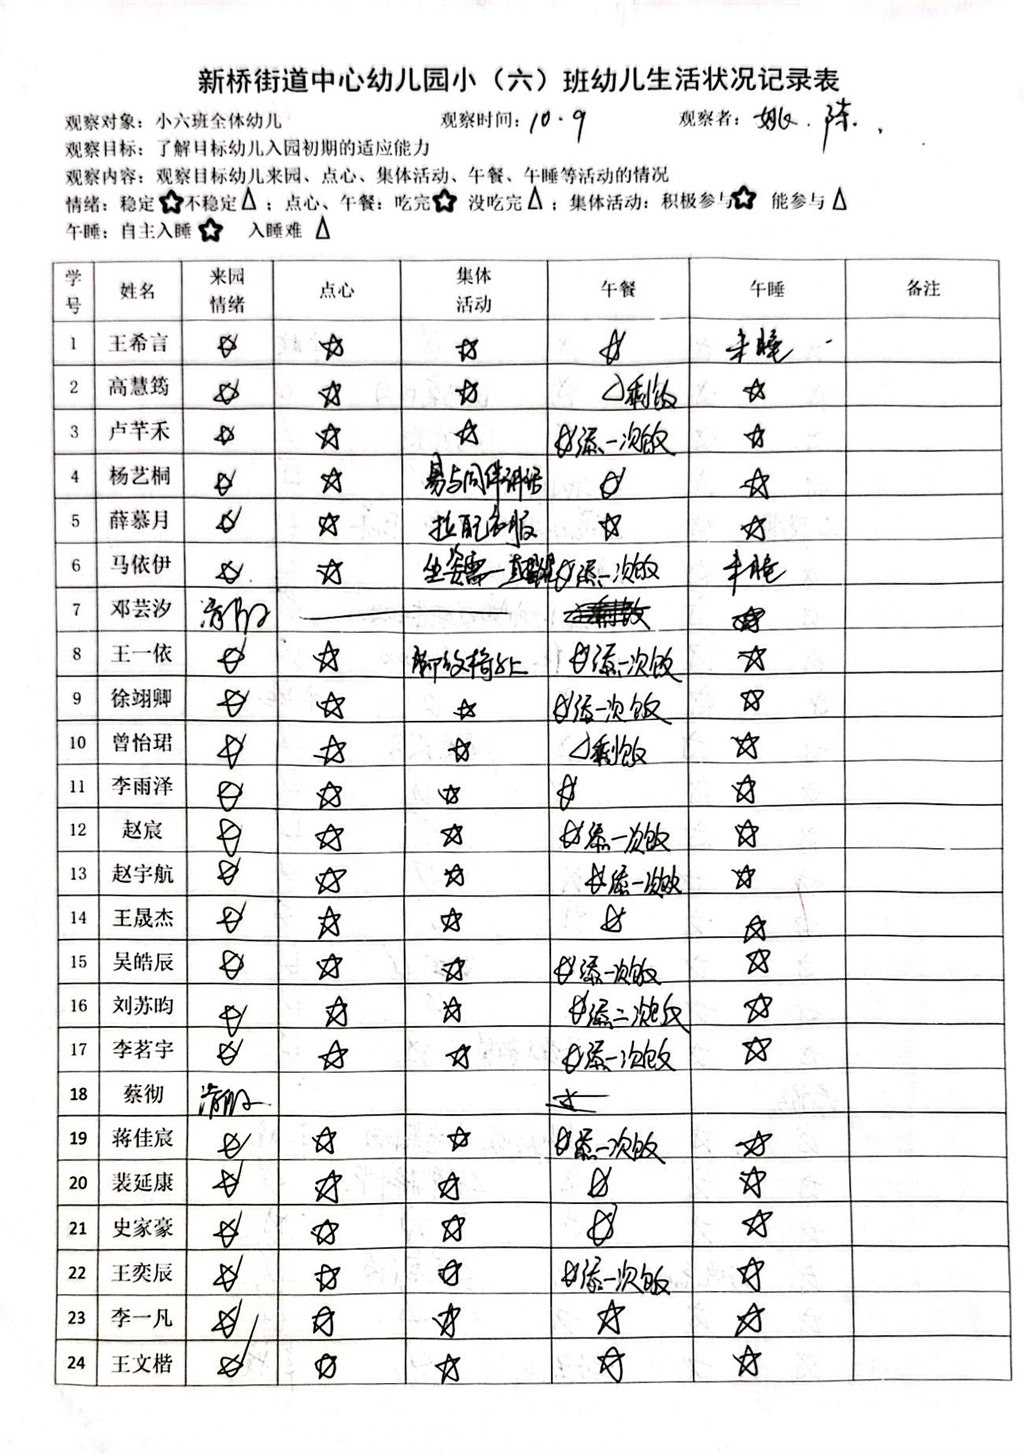 新桥街道中心幼儿园小（六）班幼儿生活状况记录表
观察对象：小六班全体幼儿 观察时间：10.9 观察者：姚.陈.
观察目标：了解目标幼儿入园初期的适应能力
观察内容：观察目标幼儿来园、点心、集体活动、午餐、午睡等活动的情况
情绪：稳定☆不稳定△；点心、午餐：吃完☆ 没吃完△；集体活动：积极参与☆ 能参与△
午睡：自主入睡☆ 入睡难△
学号 姓名 来园情绪 点心 集体活动 午餐 午睡 备注
1 王希言 ☆ ☆ ☆ ☆ 未睡
2 高慧筠 ☆ ☆ ☆ △剩饭 ☆
3 卢芊禾 ☆ ☆ ☆ ☆添一次饭 ☆
4 杨艺桐 ☆ ☆ 易与同伴讲话 ☆ ☆
5 薛慕月 ☆ ☆ 拉配衣服 ☆ ☆
6 马依伊 ☆ ☆ 坐姿需一直 ☆添一次饭 未睡
7 邓芸汐 ☆
8 王一依 ☆ ☆ 脚放椅子上 ☆添一次饭 ☆
9 徐翊卿 ☆ ☆ ☆ ☆添一次饭 ☆
10 曾怡珺 ☆ ☆ ☆ △剩饭 ☆
11 李雨泽 ☆ ☆ ☆ ☆ ☆
12 赵宸 ☆ ☆ ☆ ☆添一次饭 ☆
13 赵宇航 ☆ ☆ ☆ ☆添一次饭 ☆
14 王晟杰 ☆ ☆ ☆ ☆ ☆
15 吴皓辰 ☆ ☆ ☆ ☆添一次饭 ☆
16 刘苏昀 ☆ ☆ ☆ ☆添二次饭 ☆
17 李茗宇 ☆ ☆ ☆ ☆添一次饭 ☆
18 蔡彻
19 蒋佳宸 ☆ ☆ ☆ ☆添一次饭 ☆
20 裴延康 ☆ ☆ ☆ ☆ ☆
21 史家豪 ☆ ☆ ☆ ☆ ☆
22 王奕辰 ☆ ☆ ☆ ☆添一次饭 ☆
23 李一凡 ☆ ☆ ☆ ☆ ☆
24 王文楷 ☆ ☆ ☆ ☆ ☆